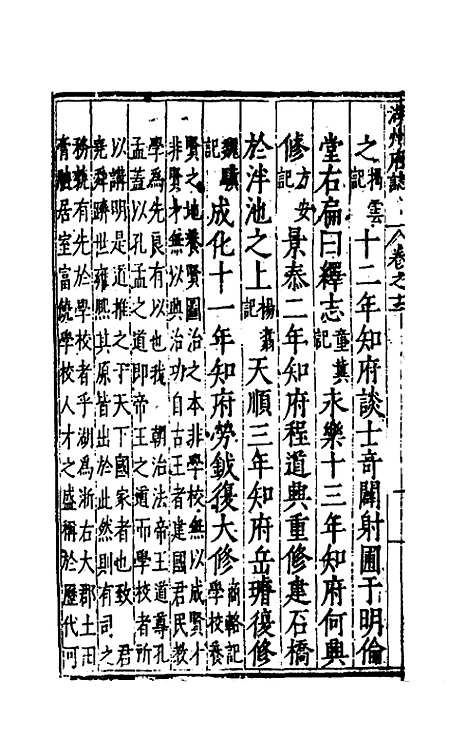 湖州府誌 卷之
之記十二年知府談士奇闢射圃于明倫
堂右扁曰繹志童冀記永樂十三年知府何興
修方安記景泰二年知府程道興重修建石橋
於泮池之上楊翥記天順三年知府岳璿復修
魏驥記成化十一年知府勞鉞復大修商輅記學校養
賢之地養賢圖治之本非學校無以成賢才
非賢才無以興治功自古王者建國君民教
學爲先良有以也我 朝治法帝王道尊孔
孟蓋以孔孟之道即帝王之道而學校者所
以講明是道推之于天下國家者也致 君
堯舜躋世雍熙其原皆出於此然則有司之
務孰有先於學校者乎湖爲浙右大郡土田
膏腴居室富饒學校人才之盛稱於歷代何